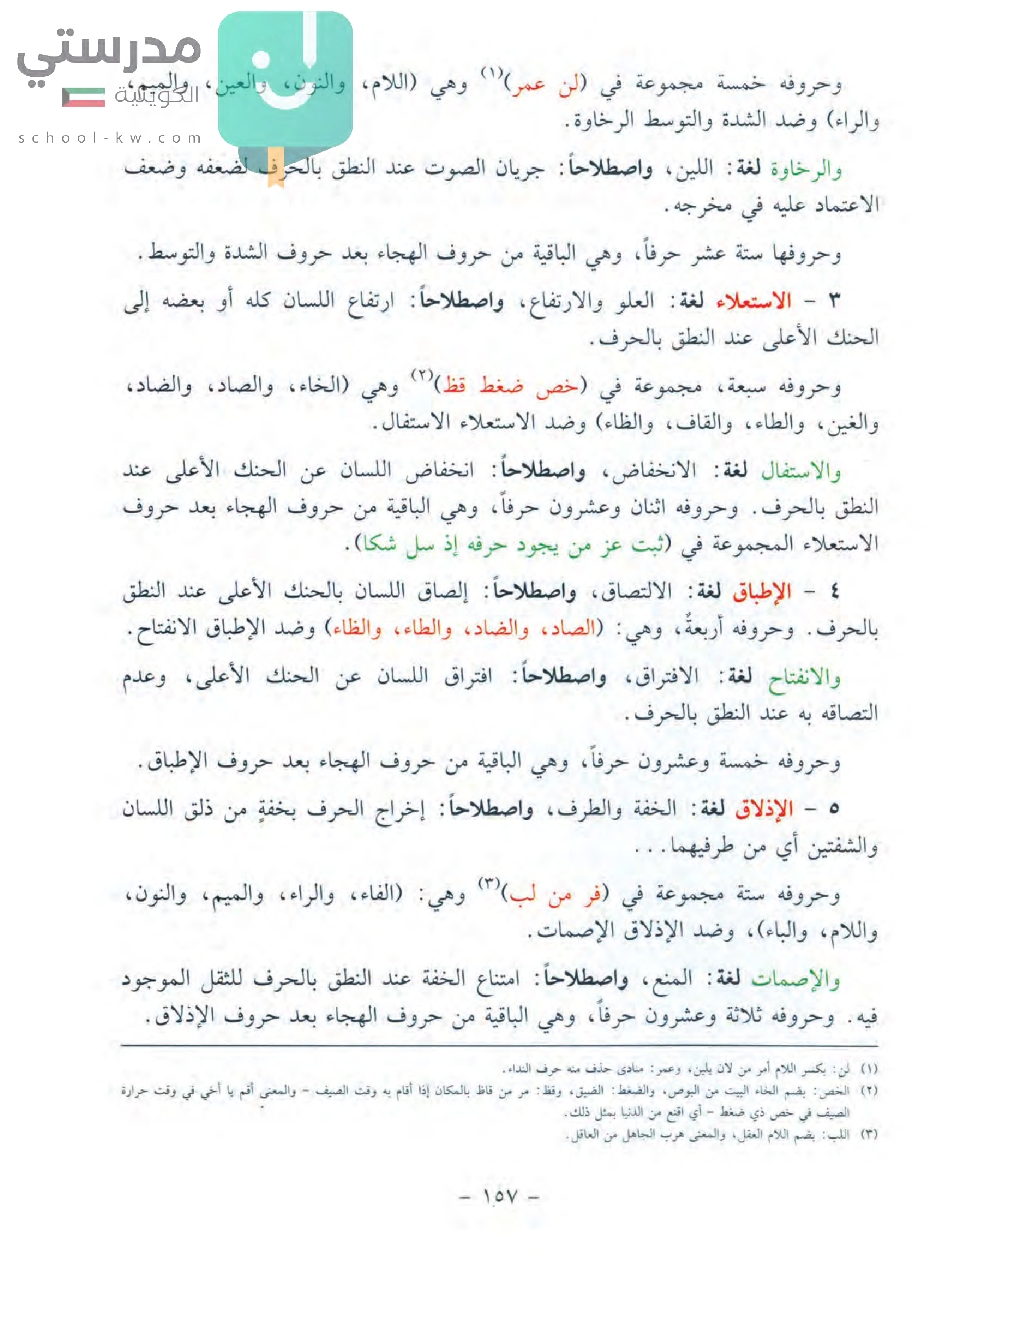 مدرستي
الكويتية
school-kw.com
وحروفه خمسة مجموعة في (لن عمر)(١) وهي (اللام، والنون، والعين، والميم،
والراء) وضد الشدة والتوسط الرخاوة.
والرخاوة لغة: اللين، واصطلاحاً: جريان الصوت عند النطق بالحرف لضعفه وضعف
الاعتماد عليه في مخرجه.
وحروفها ستة عشر حرفاً، وهي الباقية من حروف الهجاء بعد حروف الشدة والتوسط.
٣ - الاستعلاء لغة: العلو والارتفاع، واصطلاحاً: ارتفاع اللسان كله أو بعضه إلى
الحنك الأعلى عند النطق بالحرف.
وحروفه سبعة، مجموعة في (خص ضغط قظ)(٢) وهي (الخاء، والصاد، والضاد،
والغين، والطاء، والقاف، والظاء) وضد الاستعلاء الاستفال.
والاستفال لغة: الانخفاض، واصطلاحاً: انخفاض اللسان عن الحنك الأعلى عند
النطق بالحرف. وحروفه اثنان وعشرون حرفاً، وهي الباقية من حروف الهجاء بعد حروف
الاستعلاء المجموعة في (ثبت عز من يجود حرفه إذ سل شكا).
٤ - الإطباق لغة: الالتصاق، واصطلاحاً: إلصاق اللسان بالحنك الأعلى عند النطق
بالحرف. وحروفه أربعةٌ، وهي: (الصاد، والضاد، والطاء، والظاء) وضد الإطباق الانفتاح.
والانفتاح لغة: الافتراق، واصطلاحاً: افتراق اللسان عن الحنك الأعلى، وعدم
التصاقه به عند النطق بالحرف.
وحروفه خمسة وعشرون حرفاً، وهي الباقية من حروف الهجاء بعد حروف الإطباق.
٥ - الإذلاق لغة: الخفة والطرف، واصطلاحاً: إخراج الحرف بخفةٍ من ذلق اللسان
والشفتين أي من طرفيهما...
وحروفه ستة مجموعة في (فر من لب)(٣) وهي: (الفاء، والراء، والميم، والنون،
واللام، والباء)، وضد الإذلاق الإصمات.
والإصمات لغة: المنع، واصطلاحاً: امتناع الخفة عند النطق بالحرف للثقل الموجود
فيه. وحروفه ثلاثة وعشرون حرفاً، وهي الباقية من حروف الهجاء بعد حروف الإذلاق.
(١) لن: بكسر اللام أمر من لان يلين، وعمر: منادى حذف منه حرف النداء.
(٢) الخص: بضم الخاء البيت من البوص، والضغط: الضيق، وقظ: مر من قاظ بالمكان إذا أقام به وقت الصيف - والمعنى أقم يا أخي في وقت حرارة
الصيف في خص ذي ضغط - أي اقنع من الدنيا بمثل ذلك.
(٣) اللب: بضم اللام العقل، والمعنى هرب الجاهل من العاقل.
- ١٥٧ -